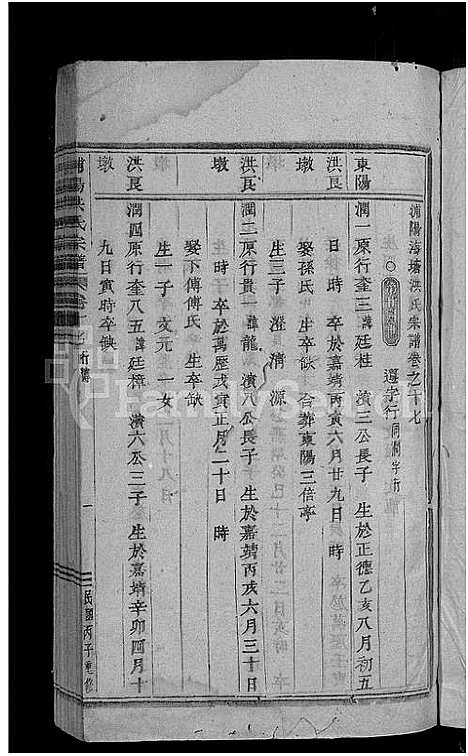 浦陽海塘洪氏宗譜卷之十七
還字行 同潤字行
東陽 潤一原行奎三諱廷桂 濱三公長子 生於正德乙亥八月初五
日 時 卒於嘉靖丙寅六月廿九日 時
洪良墩 娶孫氏 生卒缺 合葬東陽三倍亭
生三子 澄 清 源
洪良墩 潤二原行貴一諱龍 濱八公長子 生於嘉靖丙戌六月三十日
時 卒於萬歷戊寅正月二十日 時
娶下傅傅氏 生卒缺
生一子 文元 一女
洪良墩 潤四原行奎八五諱廷樟 濱六公三子 生於嘉靖辛卯四月十
九日寅時卒缺
浦陽洪氏宗譜 卷十七 行譜
一
民國丙子重修